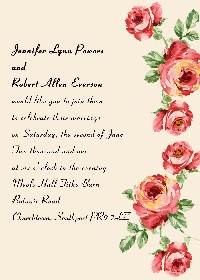 Jennifer Lynn Powers
and
Robert Allen Everson
would like you to join them
to celebrate their marriage
on Saturday, the second of June
Two thousand and one
at six o'clock in the evening
Meols Hall Tithe Barn
Botanic Road
Churchtown, Southport PR9 7LZ